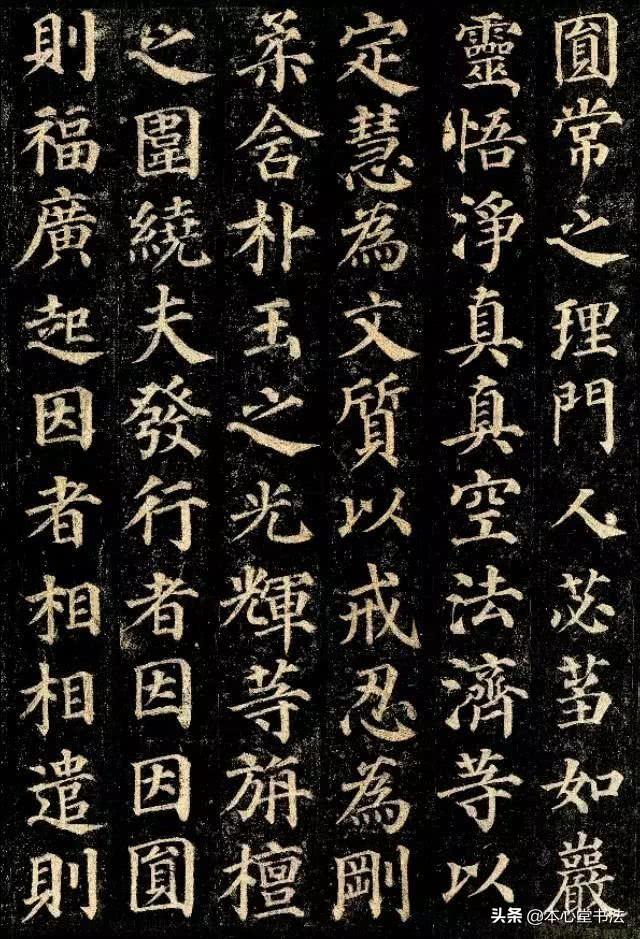 圓常之理門人苾蒭如巖
靈悟淨真真空法濟等以
定慧為文質以戒忍為剛
柔含朴玉之光輝等旃檀
之圍繞夫發行者因因圓
則福廣起因者相相遣則
头条 @本心堂书法